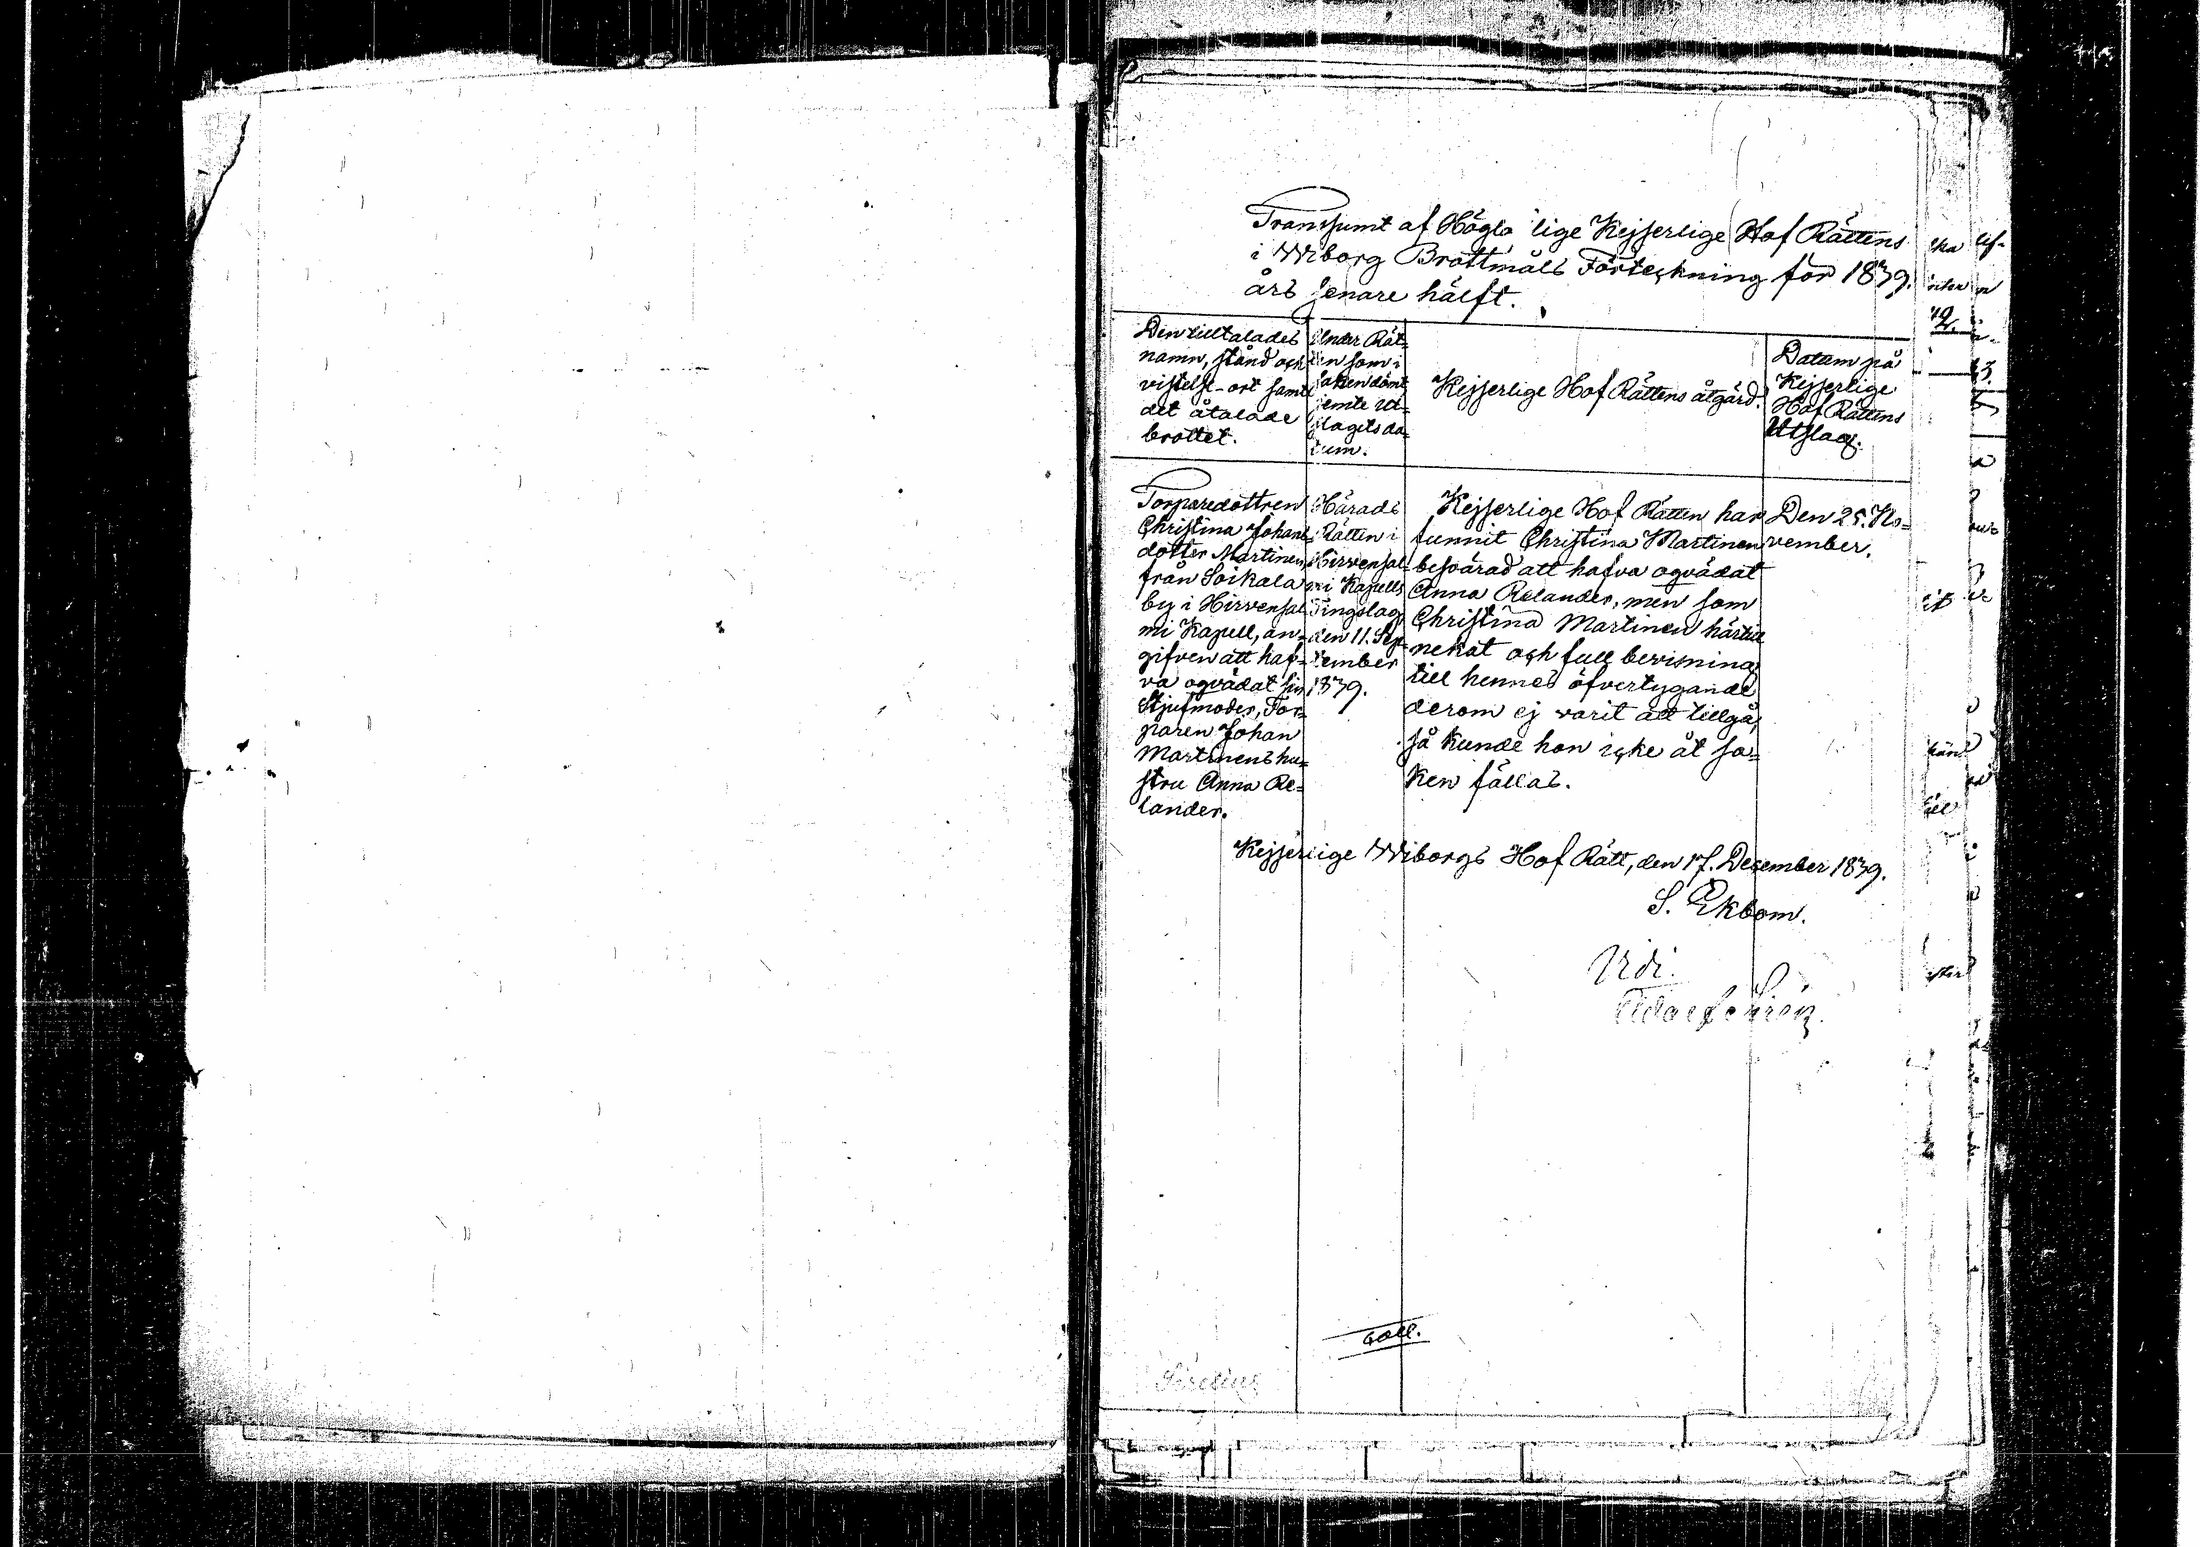 Transsumt af Höglo lige Kejserlige Hof Rättens
i Wiborg Brottmåls Förteckning för 1839.
års senare hälft.
Den tilltalades
namn, stånd och
vistelse-ort samt
det åtalade
brottet.
Under Rät-
ten som i
saken dömt
jemte Ut-
slagets da-
tum.
Kejserlige Hof Rättens åtgärd.
Datum på
Kejserlige
Hof Rättens
Utslag.
Torparedottren
Christina Johans-
dotter Martinen,
från Soikala
by i Hirvensal-
mi Kapell, an-
gifven att haf-
va oqvädat sin
Stjufmoder, Tor-
paren Johan
Martinens hu-
stru Anna Re-
lander.
Härads
Rätten i
Hirvensal-
mi Kapells
Tingslag
den 11. Sep-
tember
1839.
Kejserlige Hof Rätten har
funnit Christina Martinen
besvärad att hafva oqvädat
Anna Relander, men som
Christina Martinen härtill
nekat och full bevisning
till hennes öfvertygande
derom ej varit att tillgå,
så kunde hon icke åt sa-
ken fällas.
Den 25. No-
vember.
Kejserlige Wiborgs Hof Rätt, den 17. December 1839.
S. Ekbom.
Vidi.
coll.